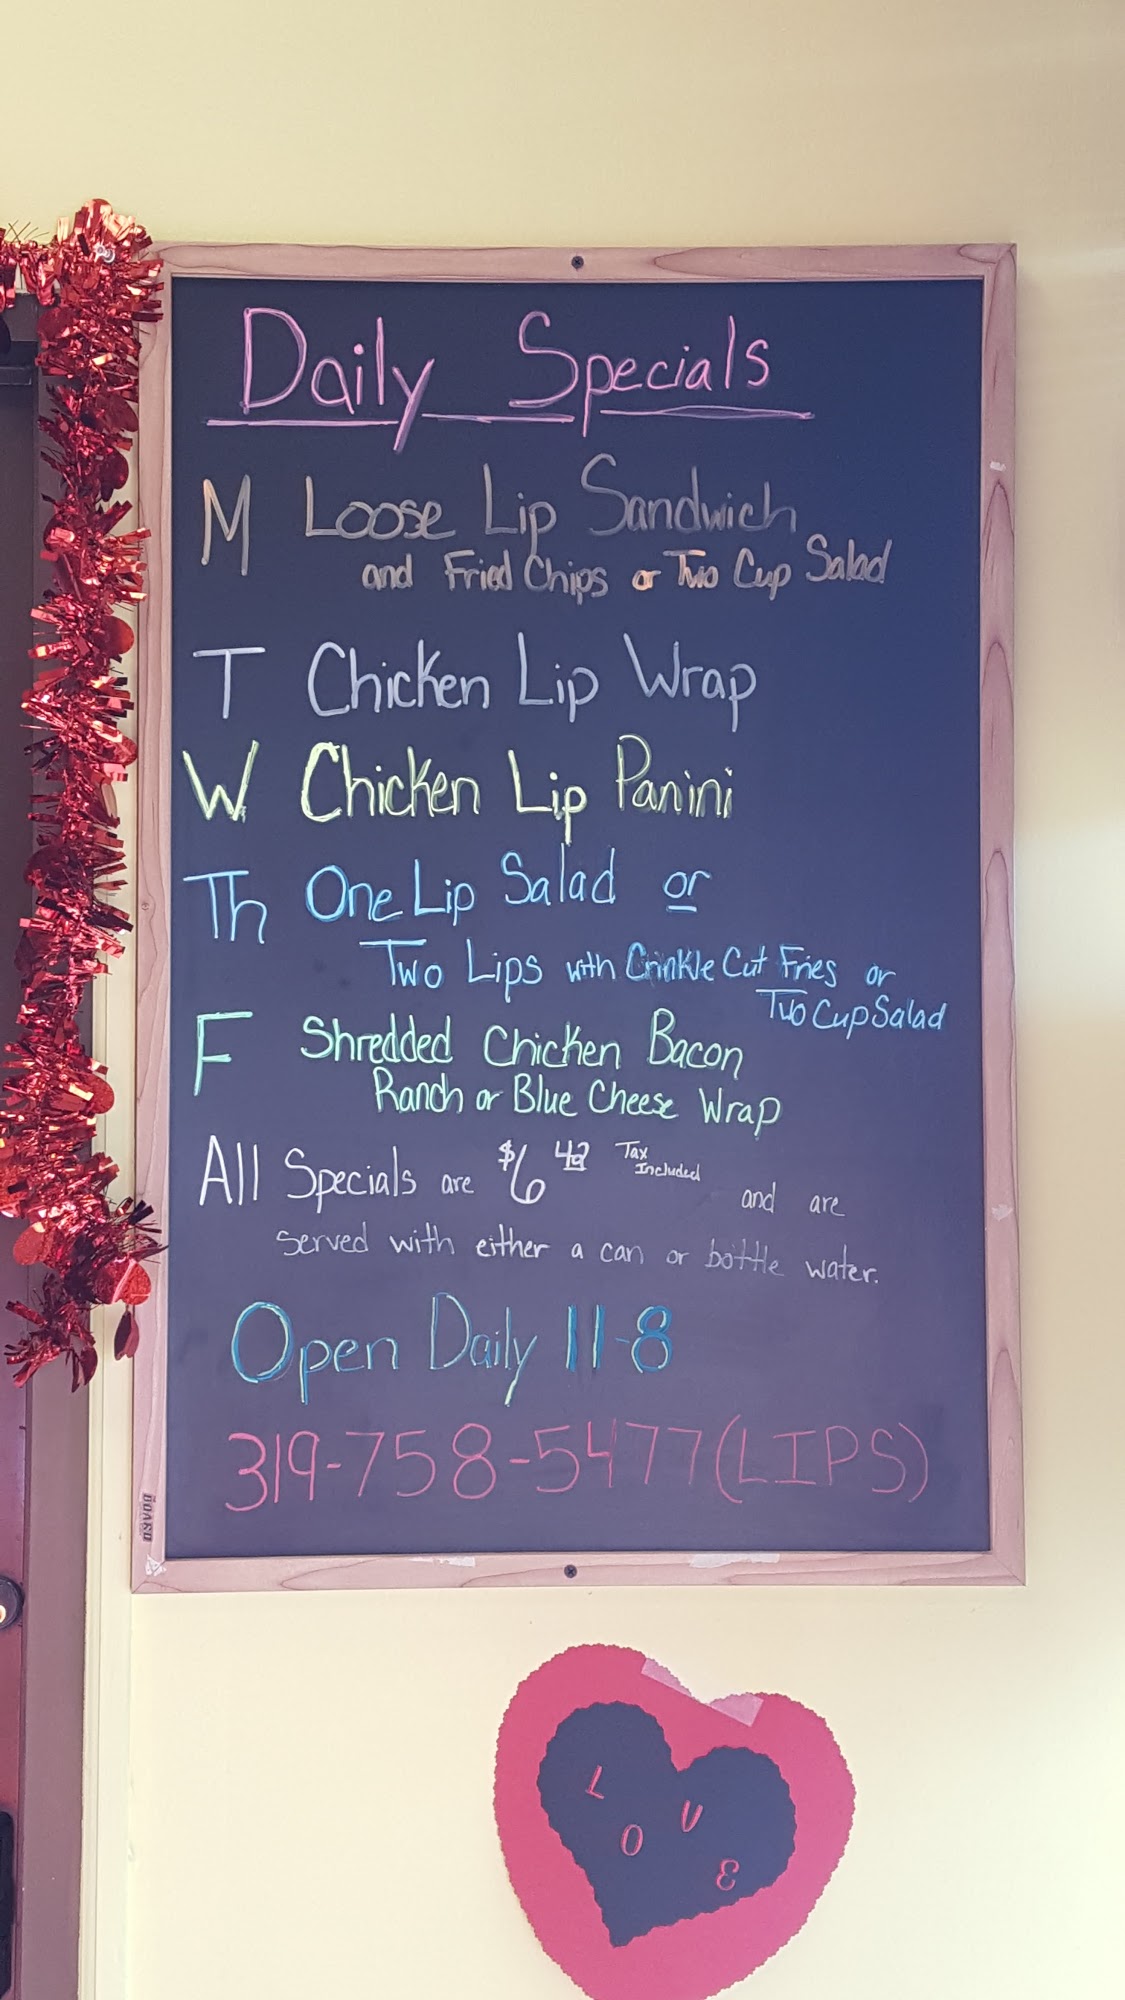 Daily Specials
M Loose Lip Sandwich
and Fried Chips or Two Cup Salad
T Chicken Lip Wrap
W Chicken Lip Panini
Th One Lip Salad or
Two Lips with Crinkle Cut Fries or
Two Cup Salad
F Shredded Chicken Bacon
Ranch or Blue Cheese Wrap
All Specials are $6 42 Tax Included and are
served with either a can or bottle water.
Open Daily 11-8
319-758-5477(LIPS)
LOVE